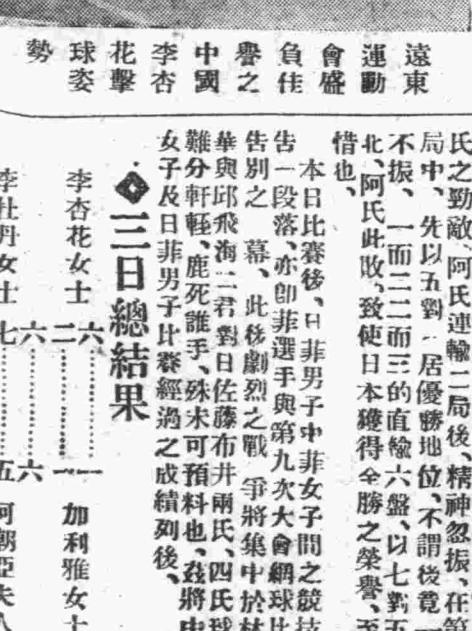 遠東
運動
會盛
負佳
譽之
中國
李杏
花擊
球姿
勢
氏之勁敵、阿氏連輸二局後、精神忽振、在第
局中、先以五對一居優勝地位、不謂後竟一
不振、一而二二而三的直輸六盤、以七對五
北、阿氏此敗、致使日本獲得全勝之榮譽、至
惜也、
本日比賽後、日菲男子中菲女子間之競技
告一段落、亦卽菲選手與第九次大會網球比
告別之 幕、此後劇烈之戰 爭將集中於林
華與邱飛海二君對日佐藤布井兩氏、四氏球
難分軒輊、鹿死誰手、殊未可預料也、茲將中
女子及日菲男子比賽經過之成績列後、
◆三日總結果
李杏花女士 六……一 加利雅女士
二……一
李杜丹女士 六……六
七……五 阿朝亞夫人